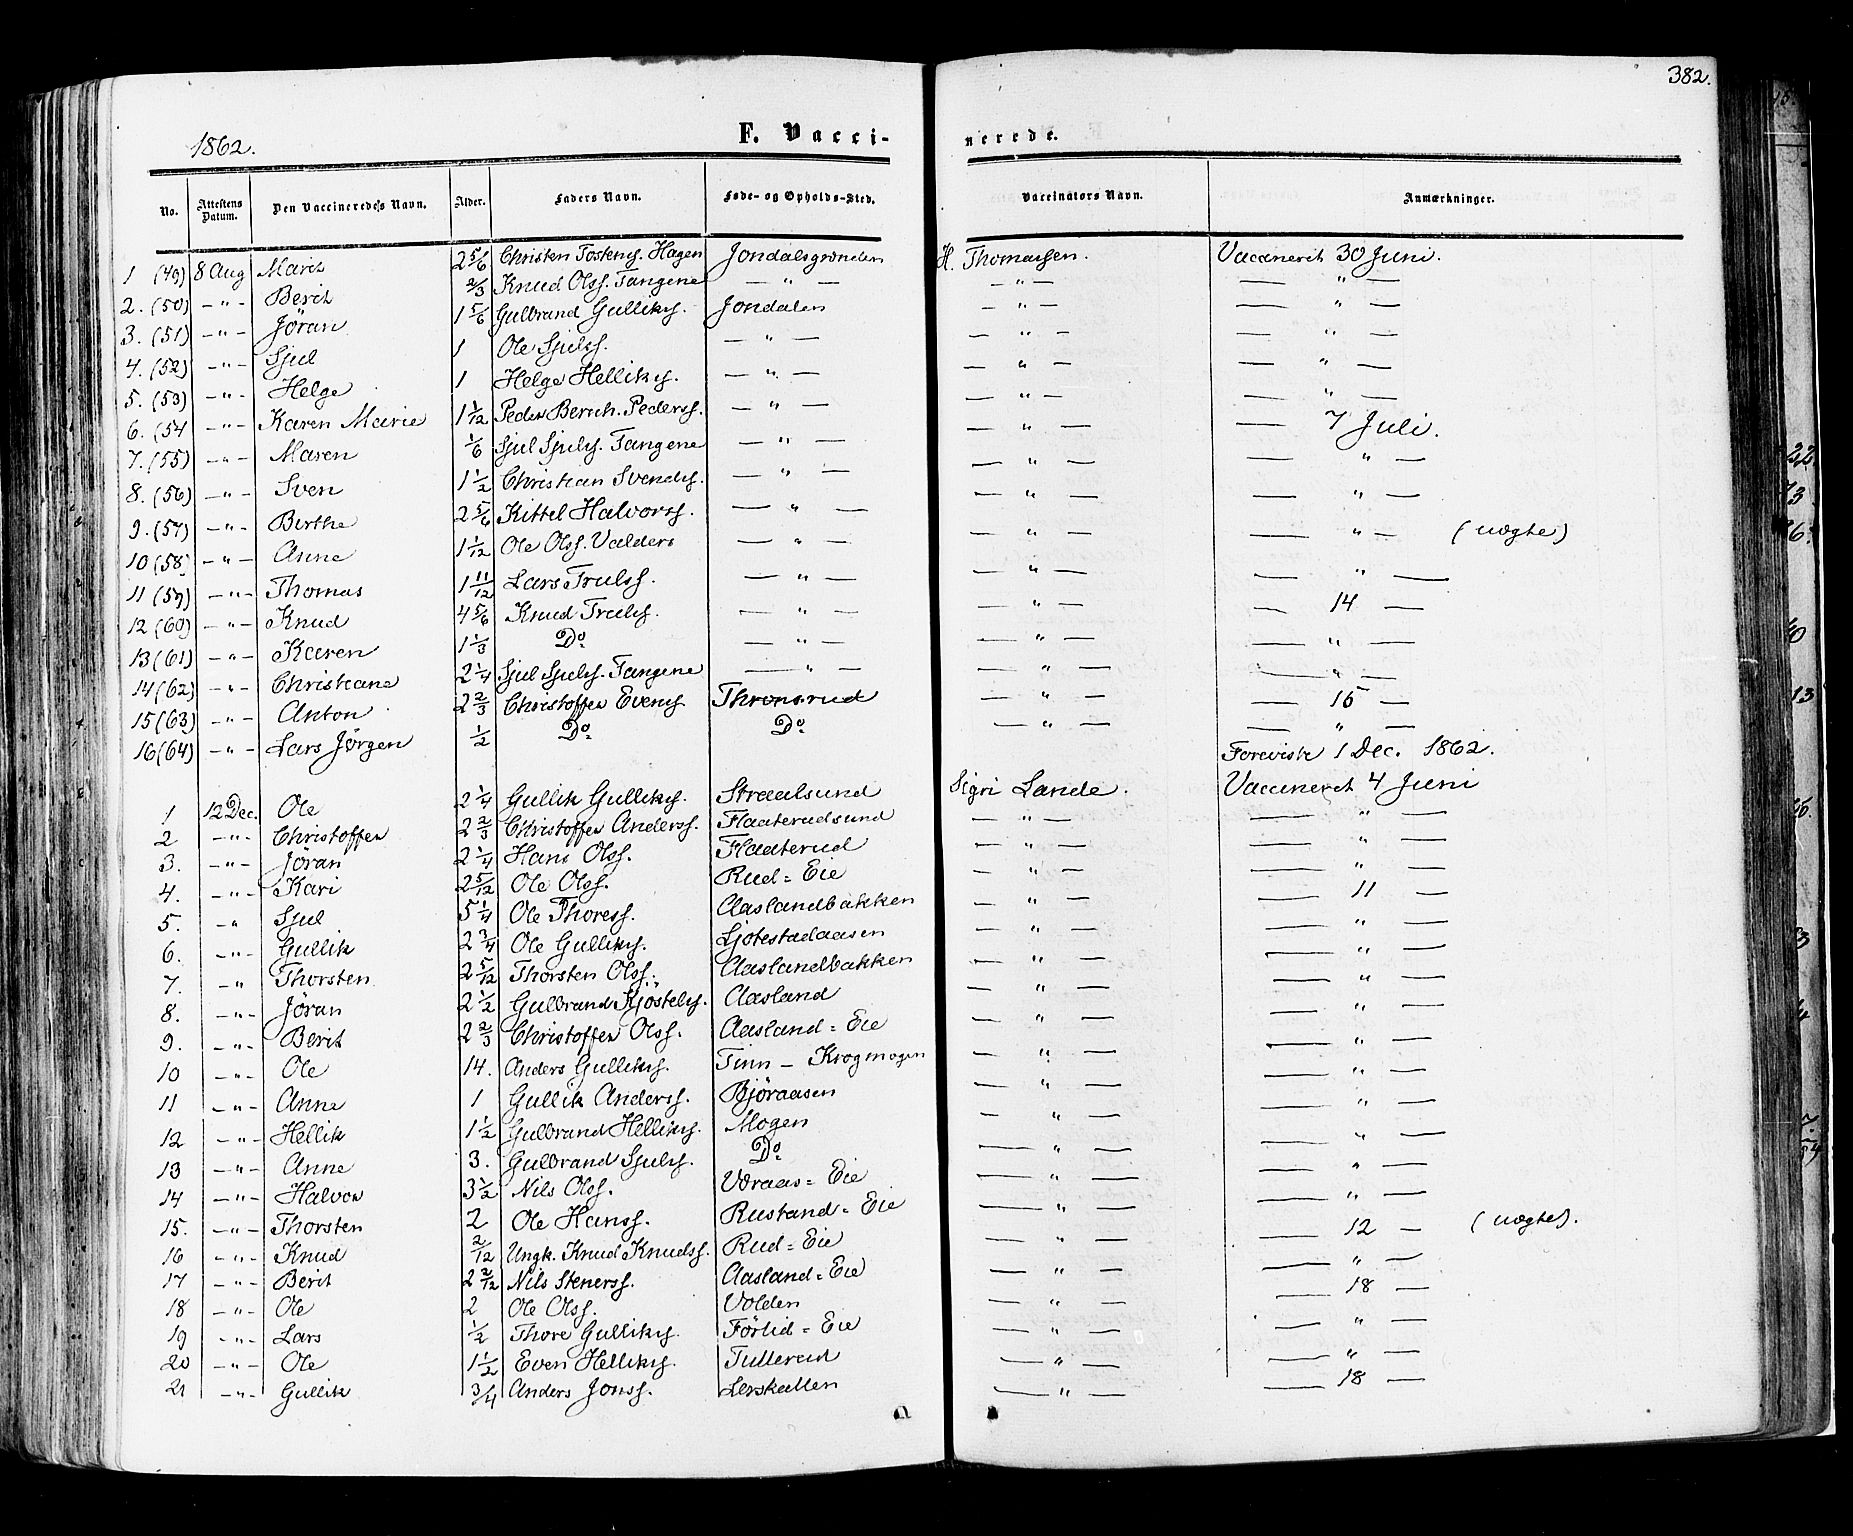 382.
1862. F. Vacci- nerede.
No. Attestens Datum. Den Vaccineredes Navn. Alder. Faders Navn. Føde- og Opholds-Sted. Vaccinators Navn. Anmærkninger.
1 (49) 8 Aug Marit 2 5/6 Christen Tostens. Hagen Jondalsgrenden H. Thomassen. Vaccineret 30 Juni.
2. (50) —"— Berit 2/3 Knud Olss. Tangene —"— —"— — " —
3. (51) —"— Jöran 1 5/6 Gulbrand Gulliks. Jondalen —"— — " —
4. (52) —"— Sjul 1 Ole Sjulss. —"— —"— — " —
5. (53) —"— Helge 1 Helge Helliks. —"— —"— — " —
6. (54 —"— Karen Marie 1 1/12 Peder Bernh. Pederss. —"— —"— — " —
7. (55) —"— Maren 1/6 Sjul Sjuls. Tangene —"— —"— — 7 Juli.
8. (56) —"— Sven 1 1/2 Christian Svends. —"— —"— — " —
9. (57) —"— Berthe 2 5/6 Kittel Halvorss. —"— —"— — " —
10 (58) —"— Anne 1 1/12 Ole Olss. Valders —"— —"— — " — (uægte)
11 (59) —"— Thomas 1 11/12 Lars Trulss. —"— —"— — " —
12 (60) —"— Knud 4 5/6 Knud Truls. —"— —"— — 14 —
13 (61) —"— Karen 1 1/3 Do —"— —"— — " —
14 (62) —"— Christiane 2 1/4 Sjul Sjuls. Tangene —"— —"— — " —
15 (63) —"— Anton 2 2/3 Christoffer Evens. Thronsrud —"— — 15 —
16 (64) —"— Lars Jørgen 1/2 Do Do —"— — " —
Foreviste 1 Dec. 1862.
1 12 Dec. Ole 2 1/4 Gullik Gulliks. Straalsund Sigri Lande. Vaccineret 4 Juni
2 —"— Christoffer 2 2/3 Christoffer Anderss. Flaaterudsund —"— — " —
3. —"— Jöran 2 1/4 Hans Olss. Flaaterud —"— — " —
4. —"— Kari 2 5/12 Ole Olss. Rud = Eie —"— — " —
5. —" Sjul 5 1/4 Ole Thoress. Aaslandbakken —"— — 11 —
6. —"— Gullik 2 3/4 Ole Gulliks. Ljotestadaasen —"— — " —
7. —" Thorsten 2 5/12 Thorsten Olss. Aaslandbakken —"— — " —
8. —"— Jöran 2 1/2 Gulbrand Kjøstels. Aasland —"— — " —
9. —"— Berit 2 2/3 Christoffer Olss. Aasland = Eie —"— — " —
10 —"— Ole 14. Anders Gulliks. Tinn - Krogmogen —"— — " —
11 —"— Anne 1 Gullik Anderss. Björaasen —"— — " —
12 —"— Hellik 1 1/2 Gulbrand Helliks. Mogen —"— — " —
13 —"— Anne 3. Gulbrand Sjuls. Do —"— — " —
14 —"— Halvor 3 1/2 Nils Olss. Veraas = Eie —"— — " —
15. —"— Thorsten 2 Ole Hanss. Rustand = Eie —"— — " —
16 —"— Knud 2/12 Ungk. Knud Knudss. Rud = Eie —"— — 12 — (uægte).
17 —"— Berit 2 2/12 Nils Steners. Aasland = Eie —"— — " —
18 —"— Ole 2 Ole Olss. Volden —"— — 18 —
19 —"— Lars 1/2 Thore Gulliks. Förlid = Eie —"— — " —
20 —"— Ole 1 1/2 Even Helliks. Tullerud —"— — " —
21 —"— Gullik 3/4 Anders Jonss. Lerskallen —"— — 18 —